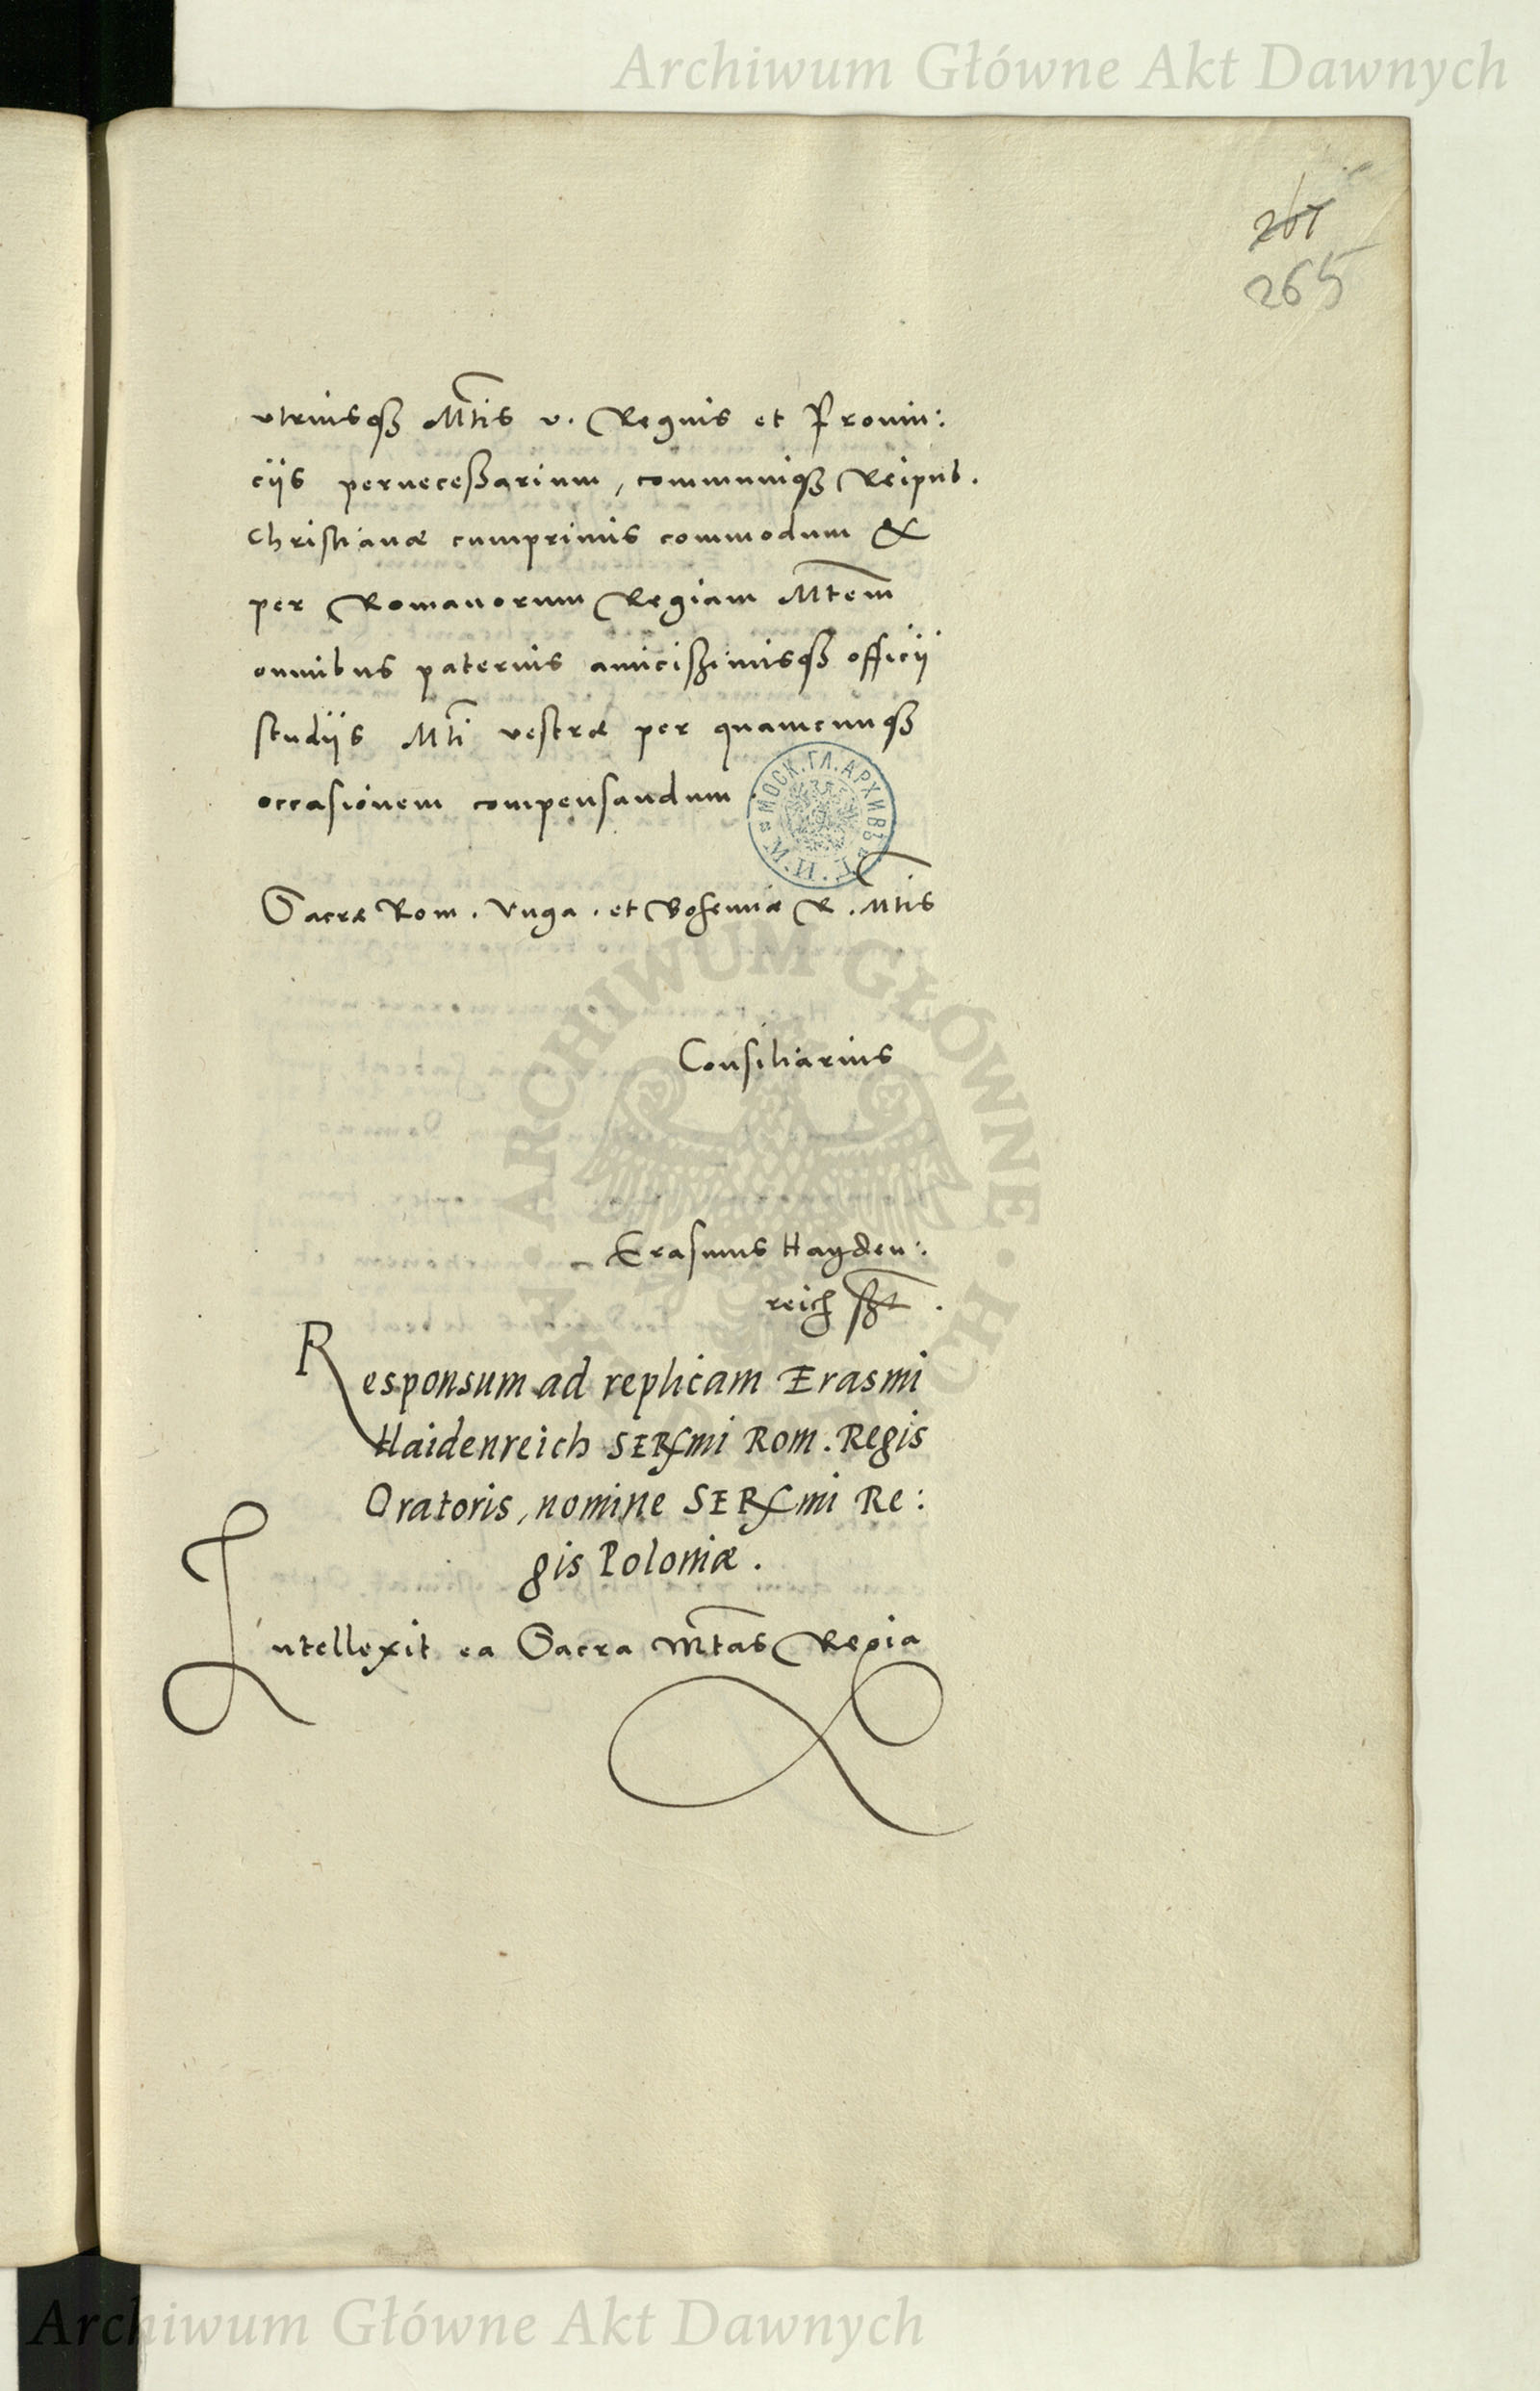 Archiwum Główne Akt Dawnych
261
265
vtriusqȝ Mtis v. Regnis et Prouin:
ciis pernecessarium, communiqȝ Reipub.
Christianæ cumprimis commodum &
per Romanorum Regiam Mtem
omnibus paternis amicissimisqȝ officij
studijs Mti vestræ per quamcunqȝ
occasionem compensandum.
МОСК.ГЛ.АРХИВЪ
Sacræ Rom. Vnga. et Bohemiæ R. Mtis
Consiliarius
Erasmus Hayden:
reich
Responsum ad replicam Erasmi
Haidenreich SERmi Rom. Regis
Oratoris, nomine SERmi Re:
gis Poloniæ.
Intellexit ea Sacra Mtas Regia
ARCHIWUM GŁÓWNE AKT DAWNYCH
Archiwum Główne Akt Dawnych